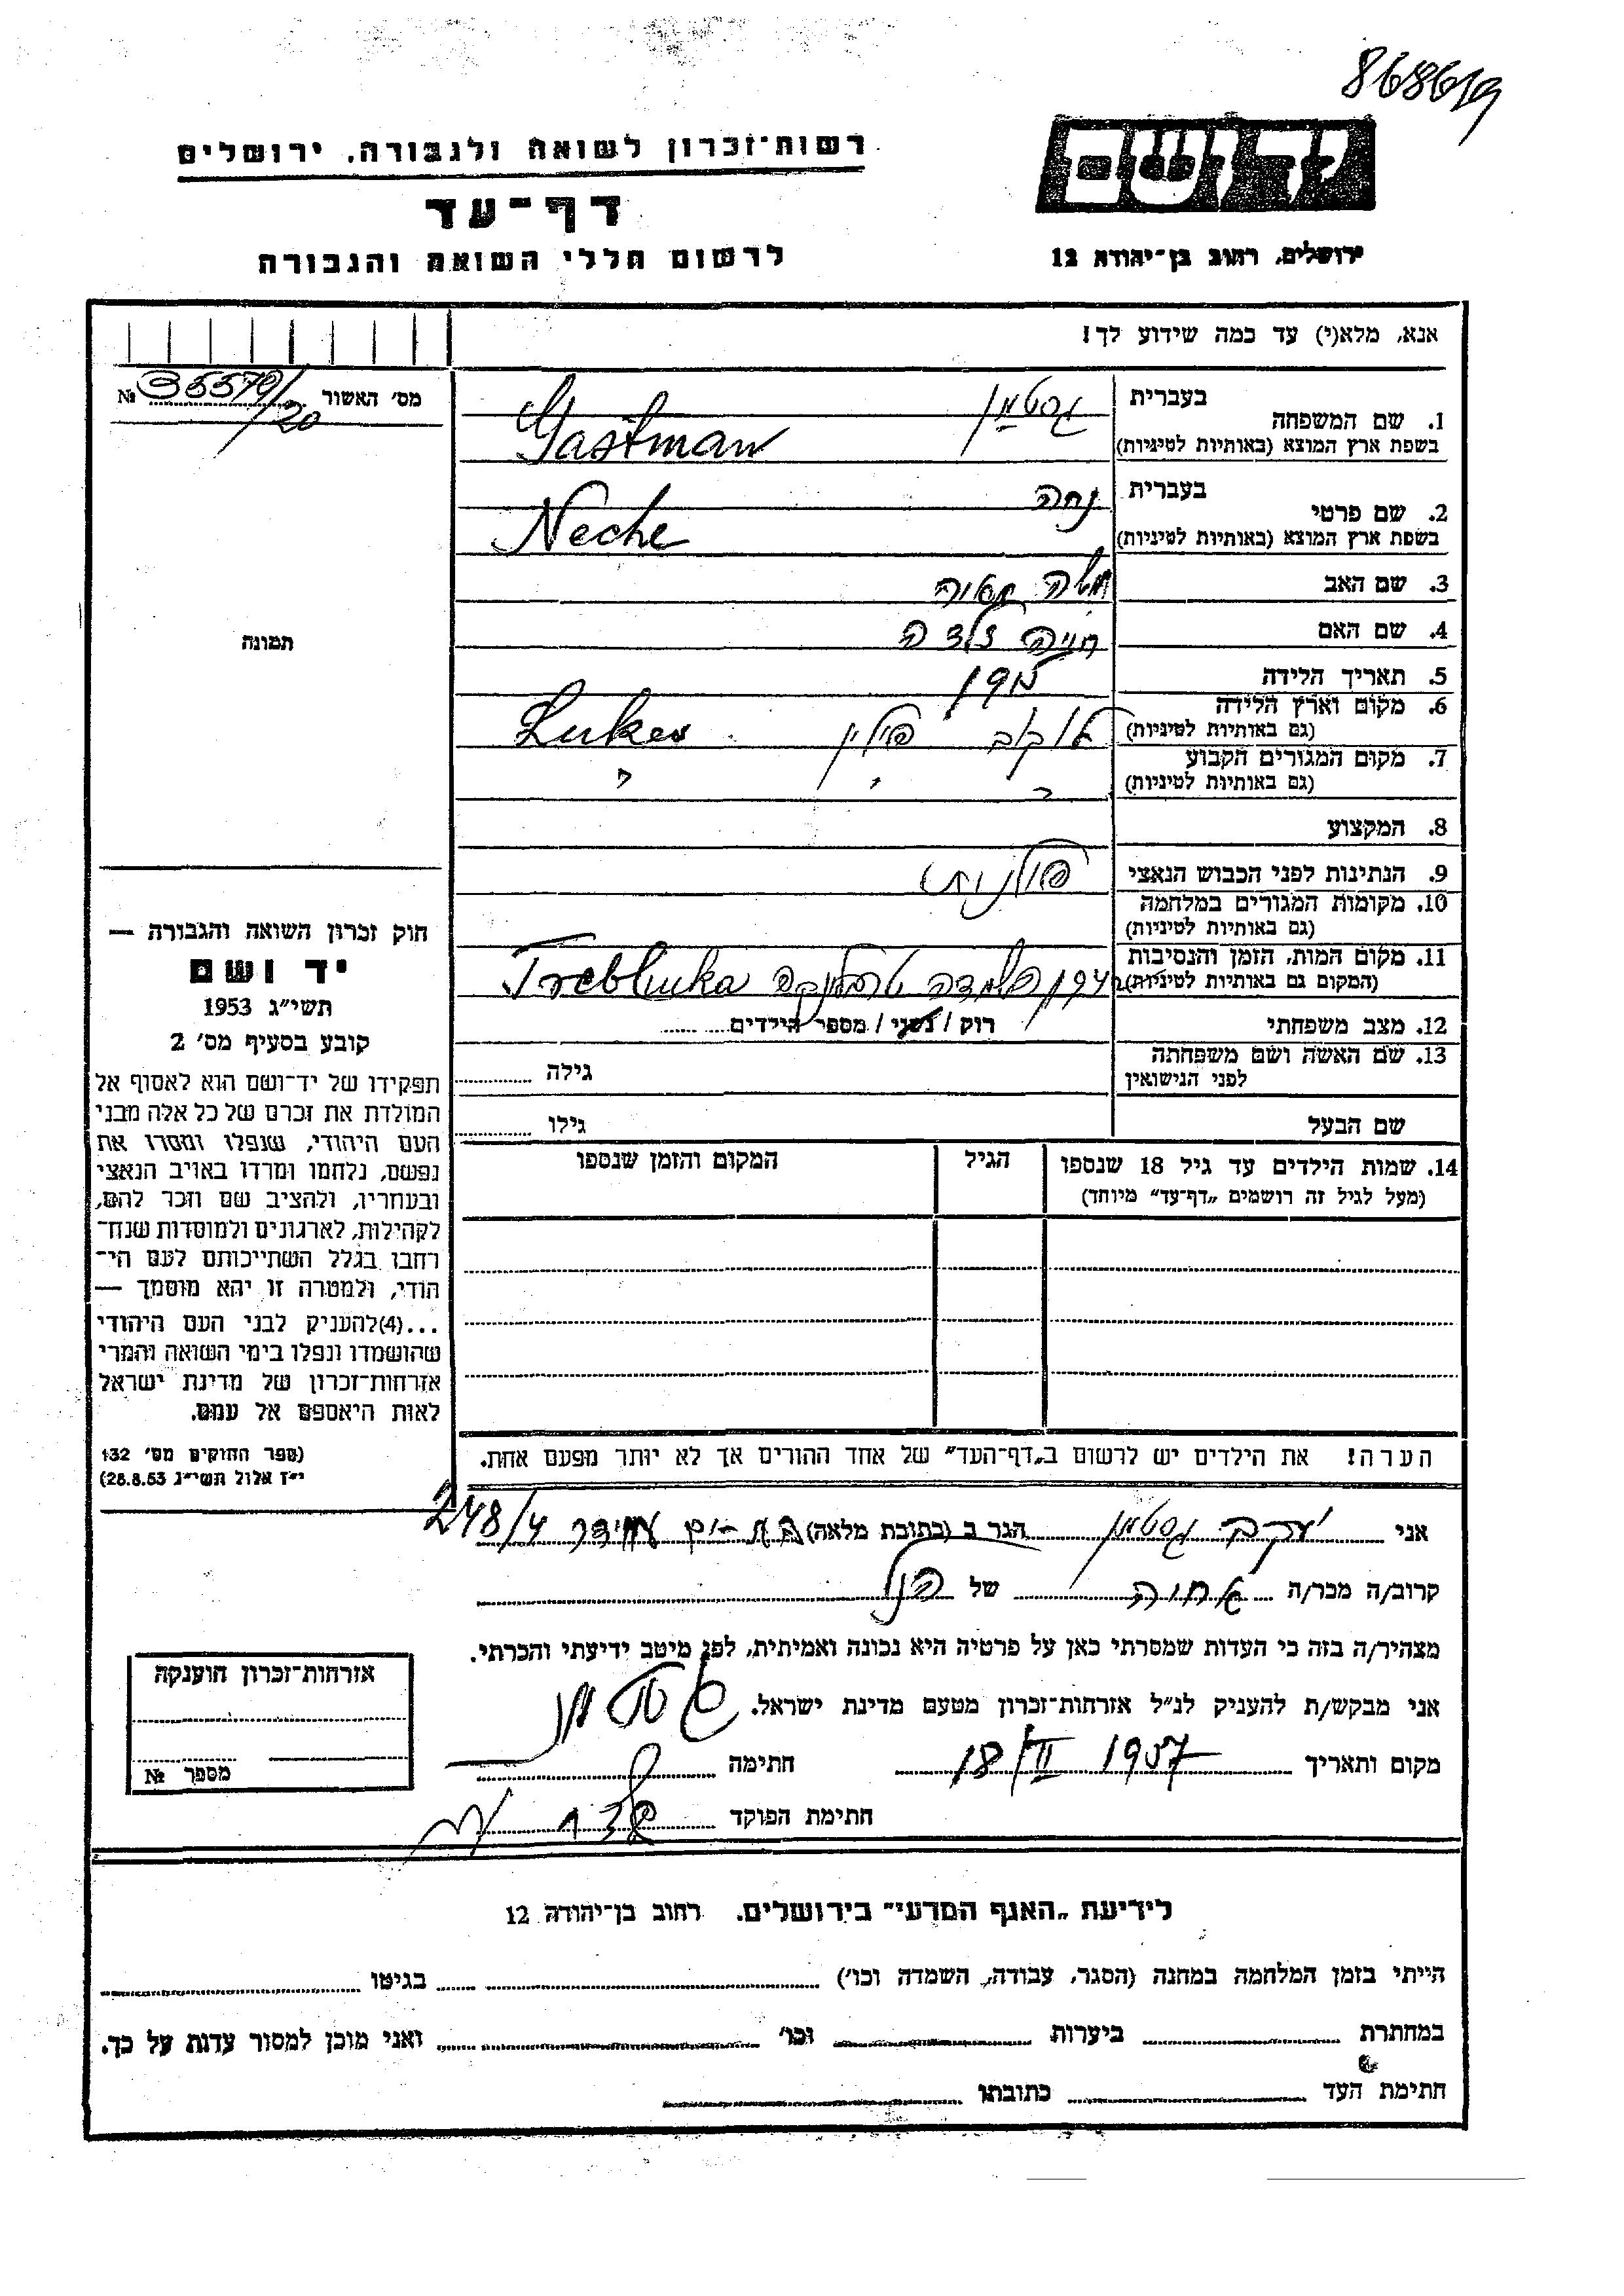 868619
יד ושם
ירושלים, רחוב בן־יהודה 12
רשות־זכרון לשואה ולגבורה, ירושלים
דף־עד
לרשום חללי השואה והגבורה
אנא, מלא(י) עד כמה שידוע לך!
מס׳ האשור 35579/20 №
בעברית גסטמן
1. שם המשפחה
בשפת ארץ המוצא (באותיות לטיניות) Gastman
בעברית נחה
2. שם פרטי
בשפת ארץ המוצא (באותיות לטיניות) Neche
3. שם האב משה
4. שם האם חיה
5. תאריך הלידה
6. מקום וארץ הלידה לוקוב פולין
(גם באותיות לטיניות) Lukov
7. מקום המגורים הקבוע
(גם באותיות לטיניות) " " "
8. המקצוע
9. הנתינות לפני הכבוש הנאצי פולנית
10. מקומות המגורים במלחמה
(גם באותיות לטיניות)
11. מקום המות, הזמן והנסיבות
(המקום גם באותיות לטיניות) טרבלינקה Treblinka
12. מצב משפחתי רוק / נשוי / מספר הילדים
13. שם האשה ושם משפחתה
לפני הנישואין גילה
שם הבעל גילו
14. שמות הילדים עד גיל 18 שנספו הגיל המקום והזמן שנספו
(מעל לגיל זה רושמים „דף־עד” מיוחד)
הערה! את הילדים יש לרשום ב„דף־העד” של אחד ההורים אך לא יותר מפעם אחת.
תמונה
חוק זכרון השואה והגבורה —
יד ושם
תשי״ג 1953
קובע בסעיף מס׳ 2
תפקידו של יד־ושם הוא לאסוף אל
המולדת את זכרם של כל אלה מבני
העם היהודי, שנפלו ומסרו את
נפשם, נלחמו ומרדו באויב הנאצי
ובעוזריו, ולהציב שם וזכר להם,
לקהילות, לארגונים ולמוסדות שנח־
רבו בגלל השתייכותם לעם הי־
הודי, ולמטרה זו יהא מוסמך —
...(4)להעניק לבני העם היהודי
שהושמדו ונפלו בימי השואה והמרי
אזרחות־זכרון של מדינת ישראל
לאות היאספם אל עמם.
(ספר החוקים מס׳ 132
י״ז אלול תשי״ג 28.8.53)
אני יעקב גסטמן הגר ב (כתובת מלאה) בת-ים עמידר 248/4
קרוב/ה מכר/ה אחוה של הנ״ל
מצהיר/ה בזה כי העדות שמסרתי כאן על פרטיה היא נכונה ואמיתית, לפי מיטב ידיעתי והכרתי.
אני מבקש/ת להעניק לנ״ל אזרחות־זכרון מטעם מדינת ישראל.
מקום ותאריך 18/II 1957 חתימה גסטמן
חתימת הפוקד
אזרחות־זכרון הוענקה
מספר №
לידיעת „האגף המדעי” בירושלים. רחוב בן־יהודה 12
הייתי בזמן המלחמה במחנה (הסגר, עבודה, השמדה וכו׳) בגיטו
במחתרת ביערות וכו׳ ואני מוכן למסור עדות על כך.
חתימת העד כתובתו